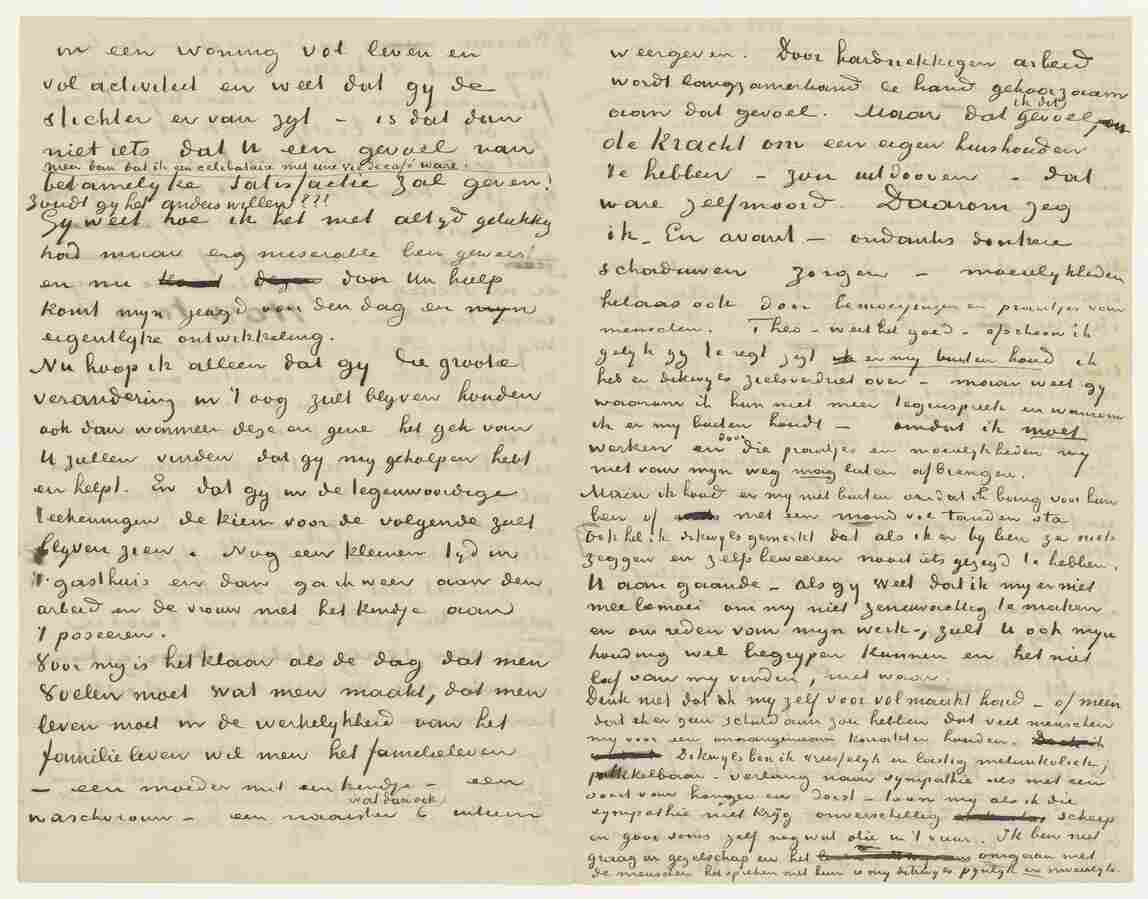 in een woning vol leven en
vol activiteit en weet dat gy de
stichter er van zyt – is dat dan
niet iets dat U een gevoel van
meer dan dat ik een celibataire met une vie de café ware.
betamelyke satisfactie zal geven!
Zoudt gy het anders willen?!!
Gy weet hoe ik het niet altyd gelukkig
had maar erg miserable ben geweest
en nu door Uw hulp
komt myn jeugd voor den dag en myn
eigentlyke ontwikkeling.
Nu hoop ik alleen dat gy die groote
verandering in 't oog zult blyven houden
ook dan wanneer deze en gene het gek van
U zullen vinden dat gy my geholpen hebt
en helpt. En dat gy in de tegenwoordige
teekeningen de kiem voor de volgende zult
blyven zien. Nog een kleinen tyd in
't gasthuis en dan ga ik weer aan den
arbeid en de vrouw met het kindje aan
't poseeren.
Voor my is het klaar als de dag dat men
voelen moet wat men maakt, dat men
leven moet in de werkelykheid van het
familieleven wil men het familieleven
– een moeder met een kindje – een
waschvrouw – een naaister wat dan ook intiem
weergeven. Door hardnekkigen arbeid
wordt langzamerhand de hand gehoorzaam
aan dat gevoel. Maar dat ik dit gevoel, om
de kracht om een eigen huishouden
te hebben – zou uitdooven – dat
ware zelfmoord. Daarom zeg
ik – En avant – ondanks donkere
schaduwen zorgen – moeielykheden
helaas ook door bemoeyingen en praatjes van
menschen. Theo – weet het goed – ofschoon ik
gelyk gy te regt zegt er my buiten houd ik
heb er dikwyls zielsverdriet over – maar weet gy
waarom ik hun niet meer tegenspreek en waarom
ik er my buiten houdt – omdat ik moet
werken en door die praatjes en moeielykheden my
niet van myn weg mag laten afbrengen.
Maar ik houd er my niet buiten omdat ik bang voor hun
ben of met een mond vol tanden sta
Ook heb ik dikwyls gemerkt dat als ik er by ben ze niets
zeggen en zelfs beweeren nooit iets gezegd te hebben.
U aangaande – als gy weet dat ik my er niet
mee bemoei om my niet zenuwachtig te maken
en om reden van myn werk –, zult U ook myn
houding wel begrypen kunnen en het niet
laf van my vinden, niet waar.
Denk niet dat ik my zelf voor volmaakt houd – of meen
dat ik er geen schuld aan zou hebben dat veel menschen
my voor een onaangenaam karakter houden.
Dikwyls ben ik vreeselyk en lastig melankoliek,
prikkelbaar – verlang naar sympathie als met een
soort van honger en dorst – toon my als ik die
sympathie niet krijg onverschillig scherp
en gooi soms zelf nog wat olie in 't vuur. Ik ben niet
graag in gezelschap en het omgaan met
de menschen het spreken met hun is my dikwyls pynlyk en moeielyk.